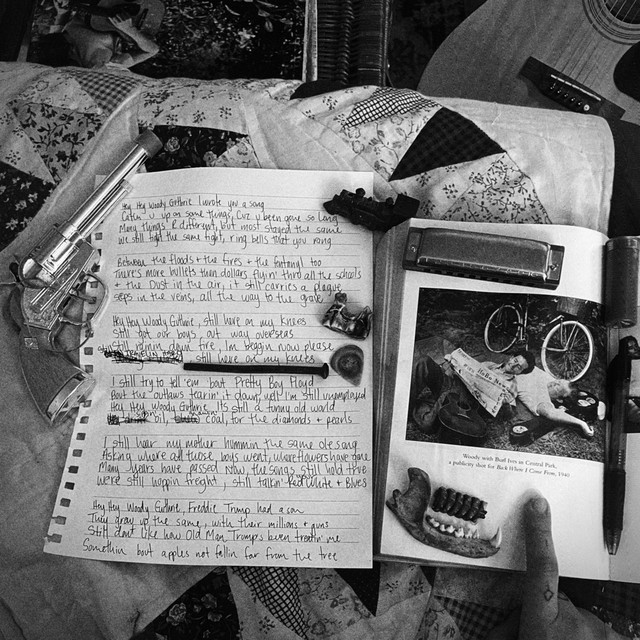 Hey Hey Woody Guthrie I wrote you a song
Catchin' u up on some things, Cuz u been gone so long
Many things R different, but most stayed the same
We still fight the same fight, ring bells that you rang
Between the floods + the fires + the fentanyl too
There's more bullets than dollars flyin' thro all the schools
+ the Dust in the air, it still carries a plague
seeps in the veins, all the way to the grave
Hey Hey Woody Guthrie, still here on my knees
Still got our boys out overseas
still down fire, I'm beggin now please
still here on my knees
I still try to tell 'em bout Pretty Boy Floyd
Bout the outlaws tearin' it down, well I'm still unemployed
Hey Hey Woody Guthrie, It's still a funny old world
oil, coal for the diamonds + pearls
I still hear my mother hummin the same ole song
Asking where all those boys went, where flowers have gone
Many years have passed now, the songs still hold true
We're still hoppin freight, still talkin' Red White + Blues
Hey Hey Woody Guthrie, Freddie Trump had a son
They gray up the same, with their millions + guns
Still don't like how Old Man Trump's been treatin' me
Somethin bout apples not fallin far from the tree
Woody with Burl Ives in Central Park,
a publicity shot for Back Where I Come From, 1940